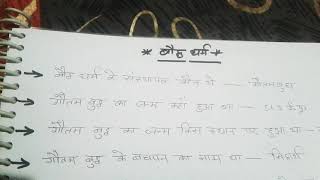 * बौद्ध धर्म *
→ बौद्ध धर्म के संस्थापक कौन थे — गौतम बुद्ध
→ गौतम बुद्ध का जन्म कहां हुआ था —
→ गौतम बुद्ध का जन्म किस स्थान पर हुआ था -
→ गौतम बुद्ध के बचपन का नाम था —